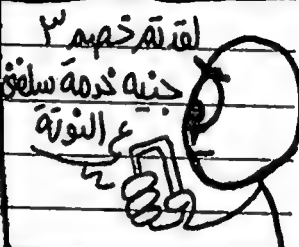 لقد تم خصم ٣
جنيه خدمة سلفني
ع النوتة